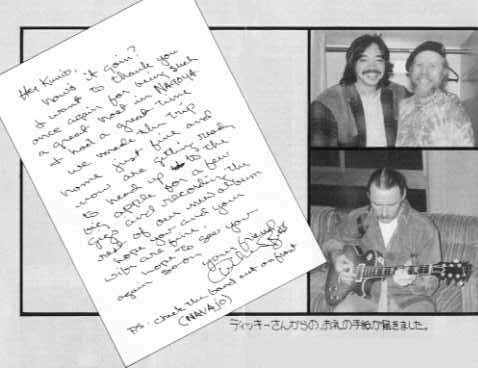 Hey Kunio,
how's it goin?
I want to thank you
once again for being such
a great host in NAGOYA
I had a great time
we made the trip
home just fine and
now are getting ready
to head up to the
big apple for a few
gigs and recording the
rest of our new album
hope you and your
wife are fine.
hope to see you
again soon
your friend
PS. check the band out on first
(NAVAJO)
ディッキーさんからの お礼の手紙が届きました。